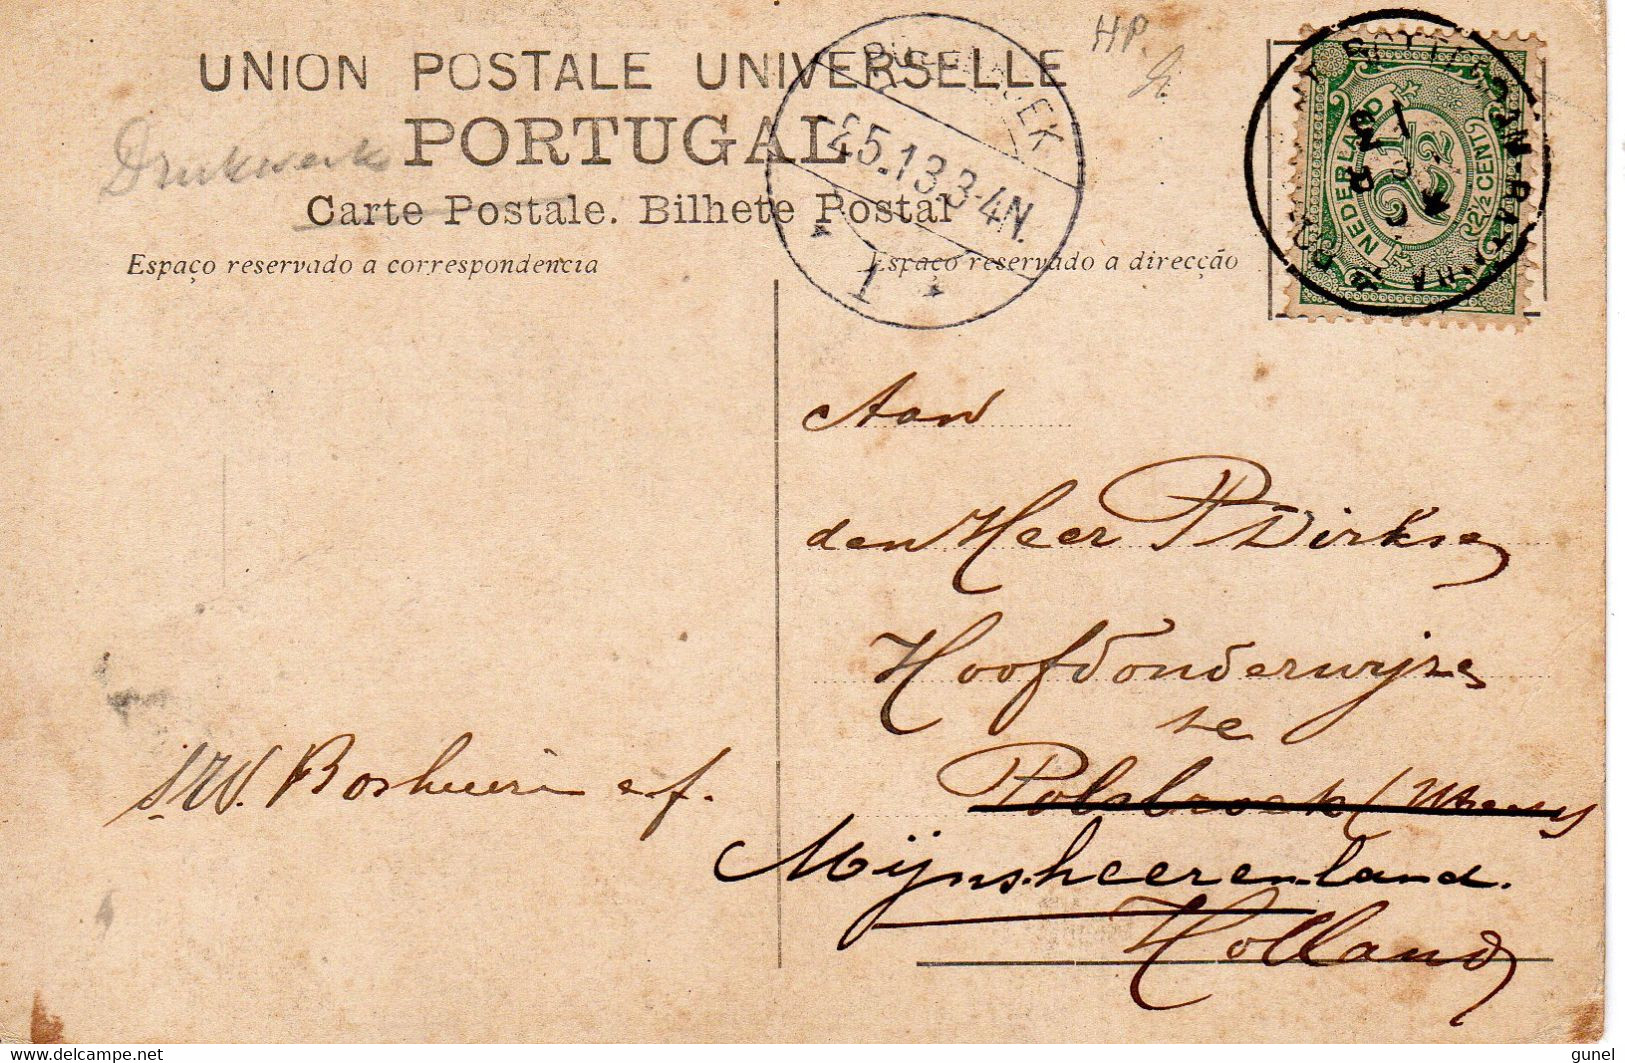 UNION POSTALE UNIVERSELLE
PORTUGAL
Carte Postale. Bilhete Postal
Espaço reservado a correspondencia
Espaço reservado a direcção
Drukwerk
HP.
5.13.3-4N.
1
NEDERLAND
2½
2½ CENT
Aan
den Heer P Dirkse
Hoofdonderwijze
te
Polsbroek
Mijnsheerenland.
Holland
Boshuizen e.f.
delcampe.net
gunel